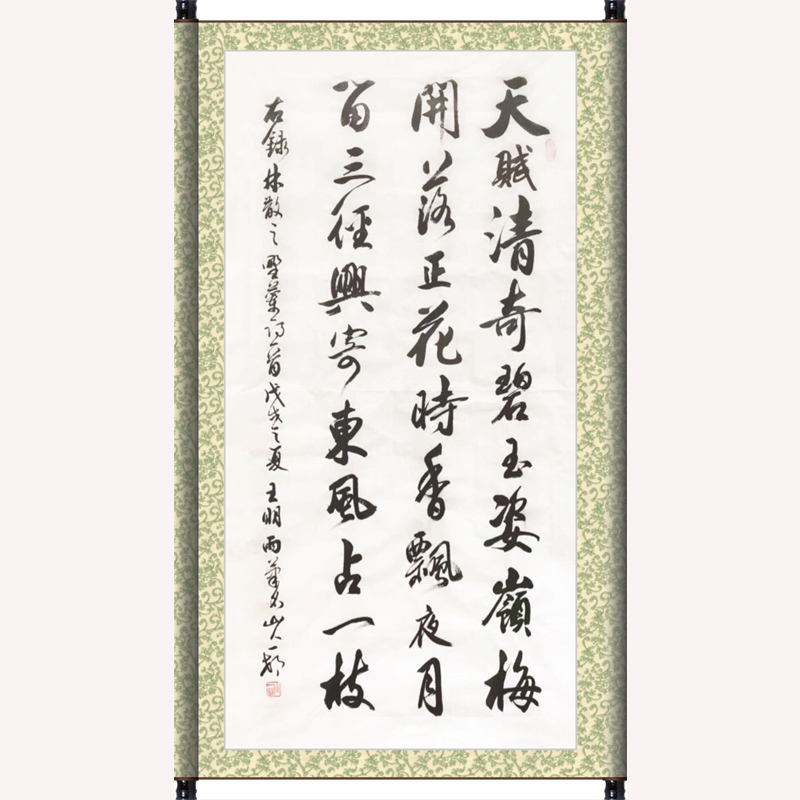 天賦清奇碧玉姿嶺梅
開落正花時香飄夜月
留三徑興寄東風占一枝
右錄林散之詩一首戊戌之夏王明雨